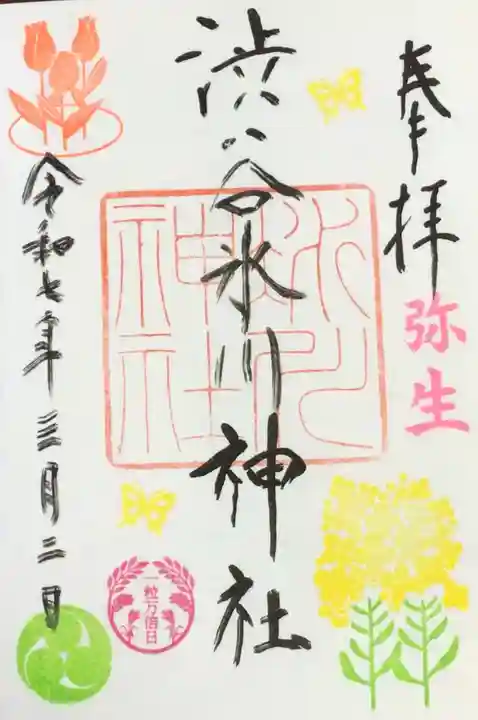 奉拝
弥生
渋谷氷川神社
氷川
神社
令和七年三月二日
一粒万倍日